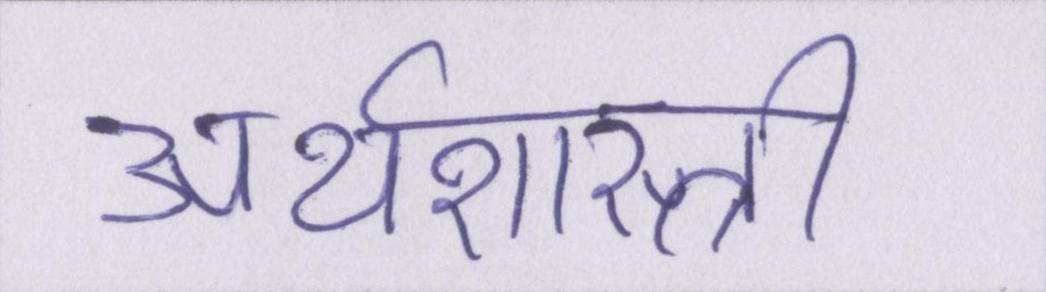 अर्थशास्त्री